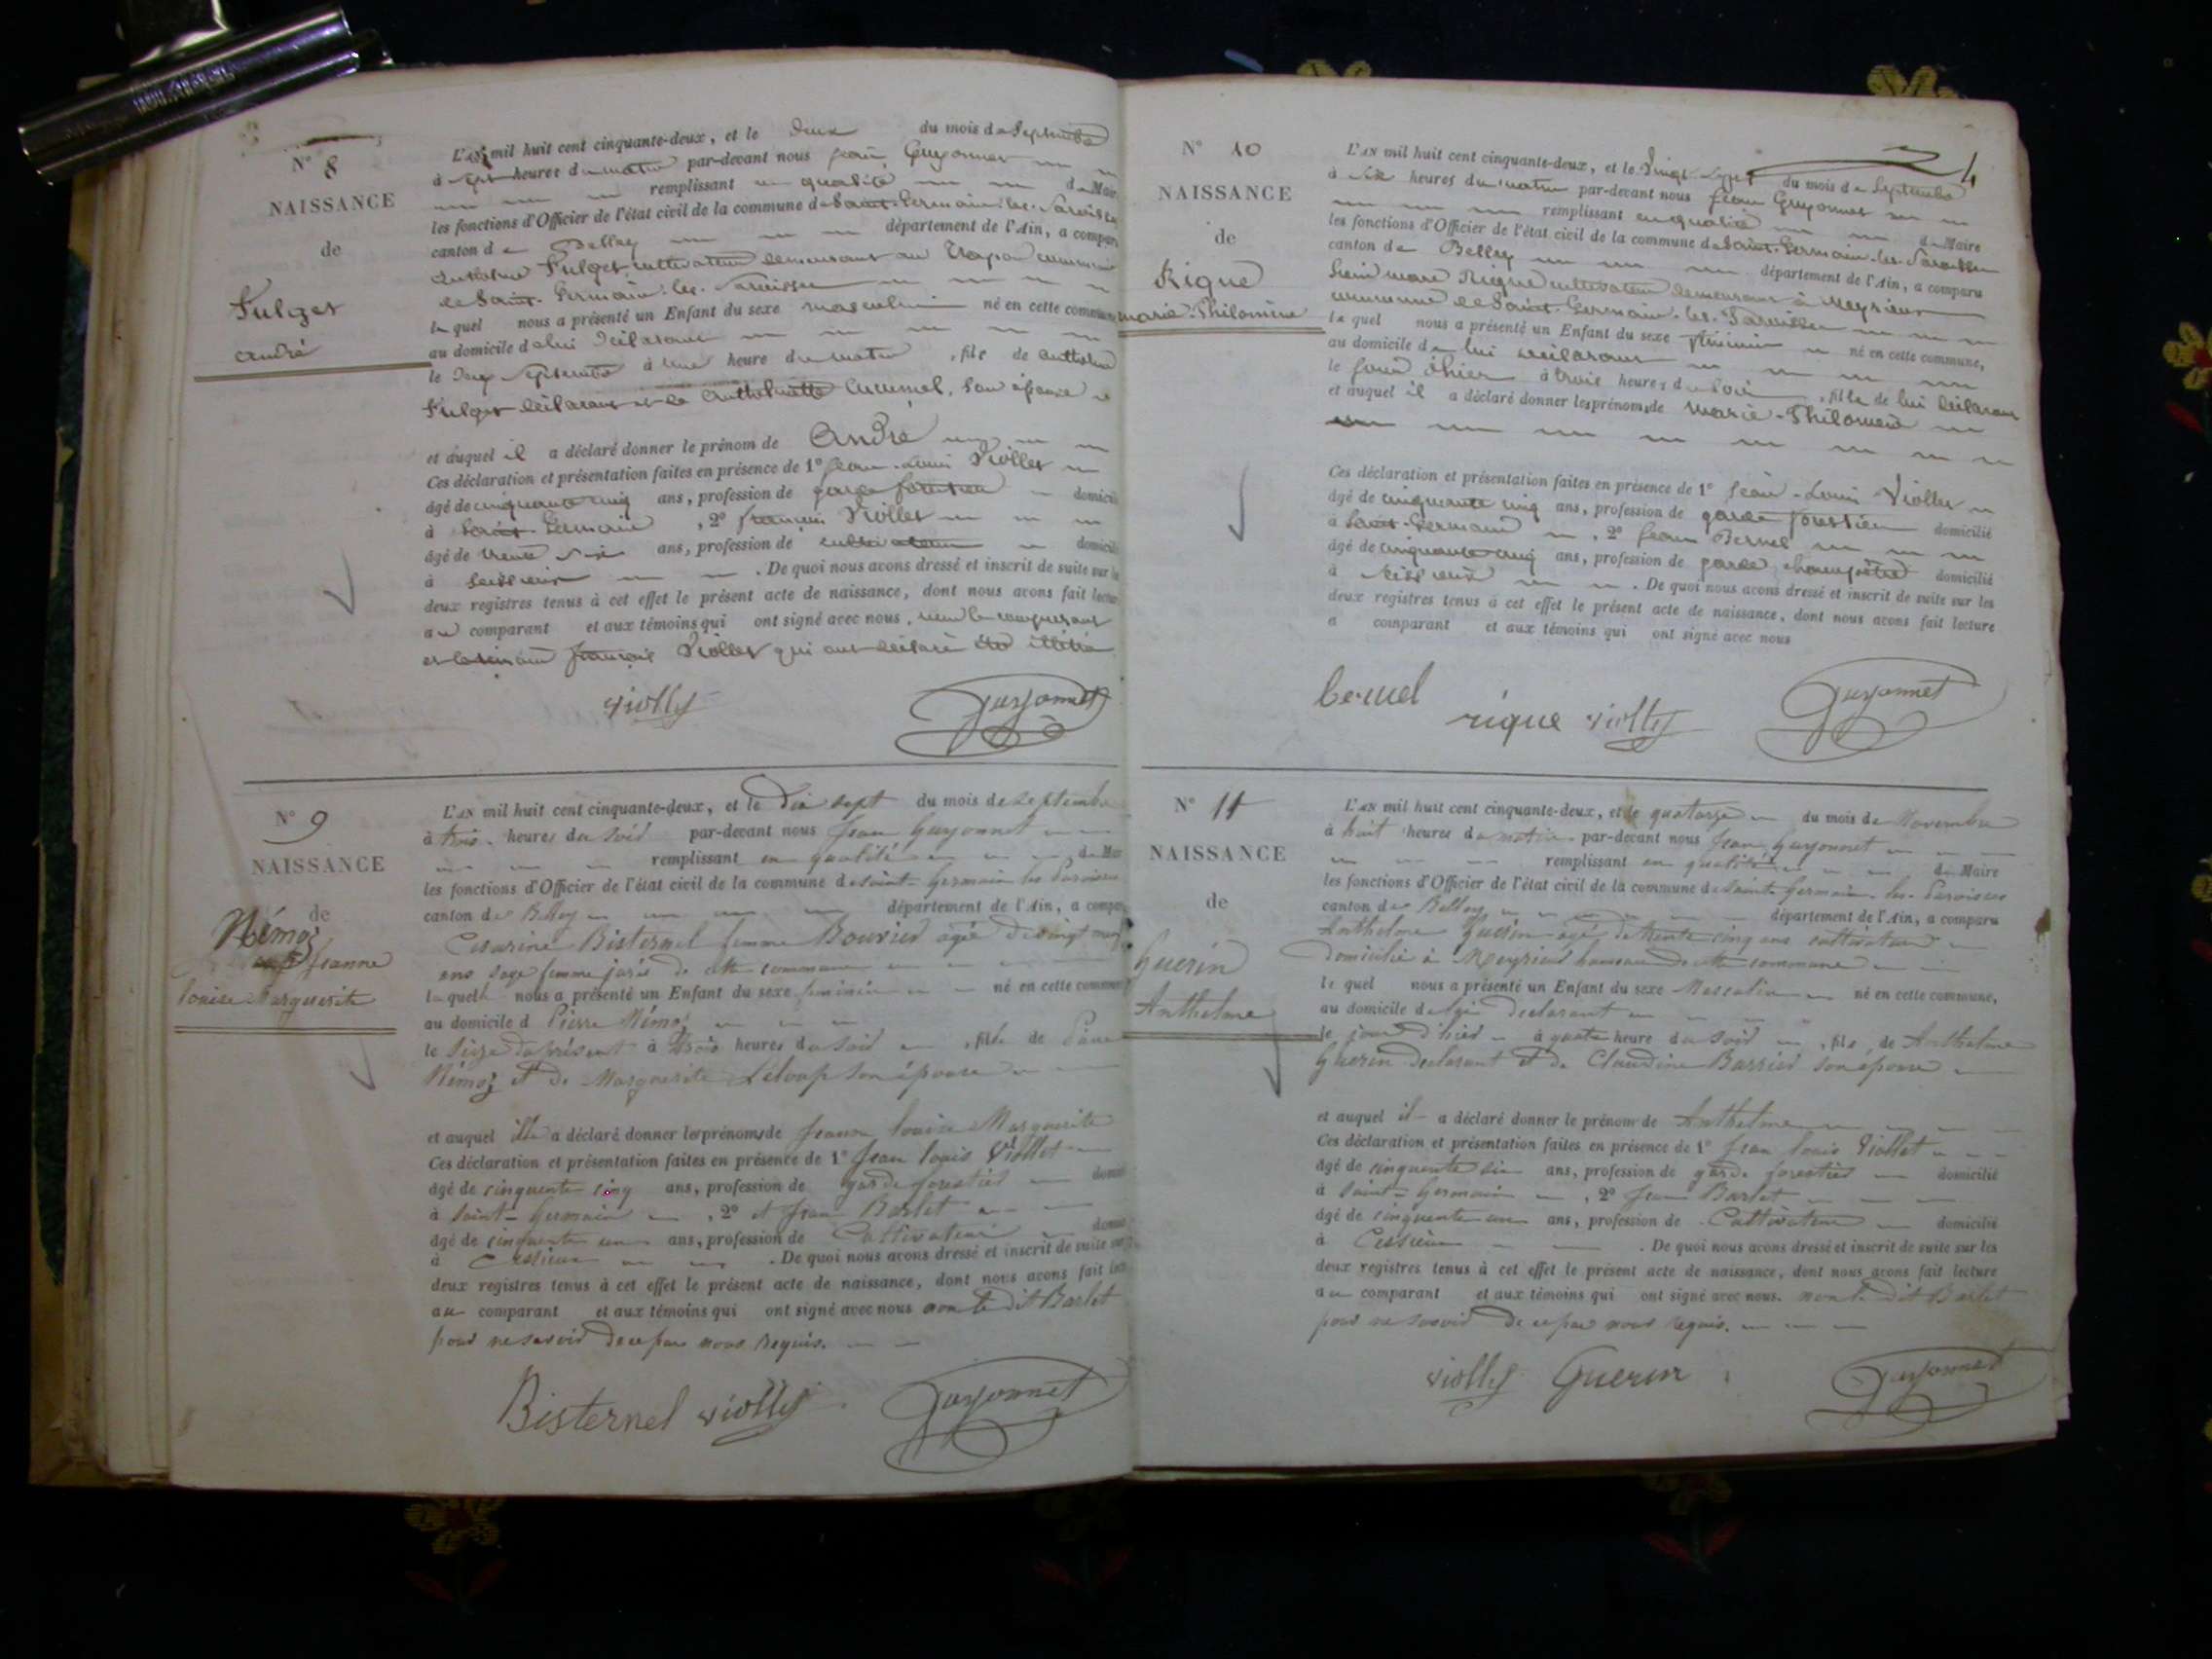 N° 8
NAISSANCE
de
Fulget
André
L'AN mil huit cent cinquante-deux, et le deux du mois de Septembre
à sept heures du matin par-devant nous Jean Guyonnet
remplissant en qualité de Maire
les fonctions d'Officier de l'état civil de la commune de Saint-Germain-les-Paroisses
canton de Belley département de l'Ain, a comparu
Anthelme Fulget cultivateur demeurant au commune
de Saint-Germain-les-Paroisses
lequel nous a présenté un Enfant du sexe masculin né en cette commune
au domicile de lui déclarant
le deux Septembre à une heure du matin, fils de Anthelme
Fulget déclarant et de Anthelmette, son épouse
et auquel il a déclaré donner le prénom de André
Ces déclaration et présentation faites en présence de 1° Jean-Louis Viollet
âgé de cinquante cinq ans, profession de garde forestier domicilié
à Saint-Germain, 2° françois Viollet
âgé de trente six ans, profession de cultivateur domicilié
à . De quoi nous avons dressé et inscrit de suite sur les
deux registres tenus à cet effet le présent acte de naissance, dont nous avons fait lecture
au comparant et aux témoins qui ont signé avec nous, non le comparant
et le témoin françois Viollet qui ont déclaré être illitéré
viollet Guyonnet
N° 9
NAISSANCE
de
Némoz
Jeanne
louise Marguerite
L'AN mil huit cent cinquante-deux, et le dix sept du mois de septembre
à trois heures du soir par-devant nous Jean Guyonnet
remplissant en qualité de Maire
les fonctions d'Officier de l'état civil de la commune de saint-Germain les Paroisses
canton de Belley département de l'Ain, a comparu
Césarine Bisternel femme Bouvier agée de vingt neuf
ans sage femme jurée de cette commune
laquelle nous a présenté un Enfant du sexe feminin né en cette commune
au domicile d Pierre Némoz
le seize du présent à trois heures du soir, fille de Pierre
Némoz et de Marguerite Leloup son épouse
et auquel elle a déclaré donner les prénoms de Jeanne louise Marguerite
Ces déclaration et présentation faites en présence de 1° Jean louis Viollet
âgé de cinquante cinq ans, profession de garde forestier domicilié
à Saint-Germain, 2° et Jean Barlet
âgé de cinquante un ans, profession de Cultivateur domicilié
à Cessieux . De quoi nous avons dressé et inscrit de suite sur les
deux registres tenus à cet effet le présent acte de naissance, dont nous avons fait lecture
au comparant et aux témoins qui ont signé avec nous non le dit Barlet
pour ne savoir de ce par nous requis.
Bisternel viollet Guyonnet
24
N° 10
NAISSANCE
de
Rigue
marie-Philomène
L'AN mil huit cent cinquante-deux, et le vingt sept du mois de Septembre
à six heures du matin par-devant nous Jean Guyonnet
remplissant en qualité de Maire
les fonctions d'Officier de l'état civil de la commune de Saint-Germain-les-Paroisses
canton de Belley département de l'Ain, a comparu
marc Rigue cultivateur demeurant à Meyrieux
commune de Saint-Germain-les-Paroisses
lequel nous a présenté un Enfant du sexe féminin né en cette commune,
au domicile de lui déclarant
le jour d'hier à trois heures du soir, fille de lui déclarant
et auquel il a déclaré donner les prénoms de Marie-Philomène
Ces déclaration et présentation faites en présence de 1° Jean-Louis Viollet
âgé de cinquante cinq ans, profession de garde forestier domicilié
à Saint-Germain, 2° Jean Bernel
âgé de cinquante cinq ans, profession de garde champêtre domicilié
à . De quoi nous avons dressé et inscrit de suite sur les
deux registres tenus à cet effet le présent acte de naissance, dont nous avons fait lecture
a comparant et aux témoins qui ont signé avec nous
bernel rigue viollet Guyonnet
N° 11
NAISSANCE
de
Guerin
Anthelme
L'AN mil huit cent cinquante-deux, et le quatorze du mois de Novembre
à huit heures du matin par-devant nous Jean Guyonnet
remplissant en qualité de Maire
les fonctions d'Officier de l'état civil de la commune de Saint-Germain-les-Paroisses
canton de Belley département de l'Ain, a comparu
Anthelme Guerin agé de trente cinq ans cultivateur
domicilié à Meyrieux hameau de cette commune
lequel nous a présenté un Enfant du sexe Masculin né en cette commune,
au domicile de lui déclarant
le jour d'hier à quatre heure du soir, fils de Anthelme
Guerin déclarant et de Claudine Barrier son épouse
et auquel il a déclaré donner le prénom de Anthelme
Ces déclaration et présentation faites en présence de 1° Jean louis Viollet
âgé de cinquante six ans, profession de garde forestier domicilié
à Saint-Germain, 2° Jean Barlet
âgé de cinquante un ans, profession de Cultivateur domicilié
à Cessieux . De quoi nous avons dressé et inscrit de suite sur les
deux registres tenus à cet effet le présent acte de naissance, dont nous avons fait lecture
au comparant et aux témoins qui ont signé avec nous. non le dit Barlet
pour ne savoir de ce par nous requis.
viollet Guerin Guyonnet